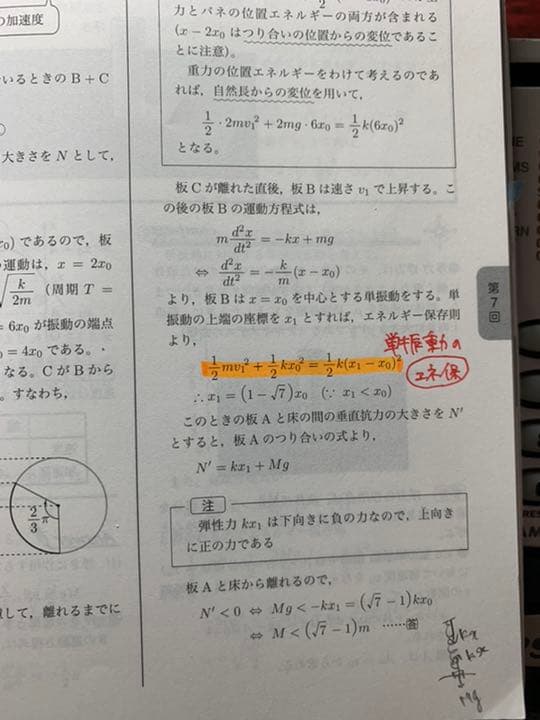 の加速度
いるときの B + C
大きさを N として,
x₀) であるので, 板
運動は, x = 2x₀
√(k/2m) (周期 T =
= 6x₀ が振動の端点
= 4x₀ である。
なる。C が B から
すなわち,
2/3 π
して, 離れるまでに
力とバネの位置エネルギーの両方が含まれる
(x − 2x₀ はつり合いの位置からの変位であるこ
とに注意)。
重力の位置エネルギーをわけて考えるのであ
れば, 自然長からの変位を用いて,
1/2 · 2mv₁² + 2mg · 6x₀ = 1/2 k(6x₀)²
となる。
板 C が離れた直後, 板 B は速さ v₁ で上昇する。こ
の後の板 B の運動方程式は,
m d²x/dt² = −kx + mg
⇔ d²x/dt² = −k/m (x − x₀)
より, 板 B は x = x₀ を中心とする単振動をする。単
振動の上端の座標を x₁ とすれば, エネルギー保存則
より,
単振動の
エネ保
1/2 mv₁² + 1/2 kx₀² = 1/2 k(x₁ − x₀)²
∴ x₁ = (1 − √7)x₀ (∵ x₁ < x₀)
このときの板 A と床の間の垂直抗力の大きさを N′
とすると, 板 A のつり合いの式より,
N′ = kx₁ + Mg
注
弾性力 kx₁ は下向きに負の力なので, 上向き
に正の力である
板 A と床から離れるので,
N′ < 0 ⇔ Mg < −kx₁ = (√7 − 1)kx₀
⇔ M < (√7 − 1)m ……答
第7回
kx
kx
Mg